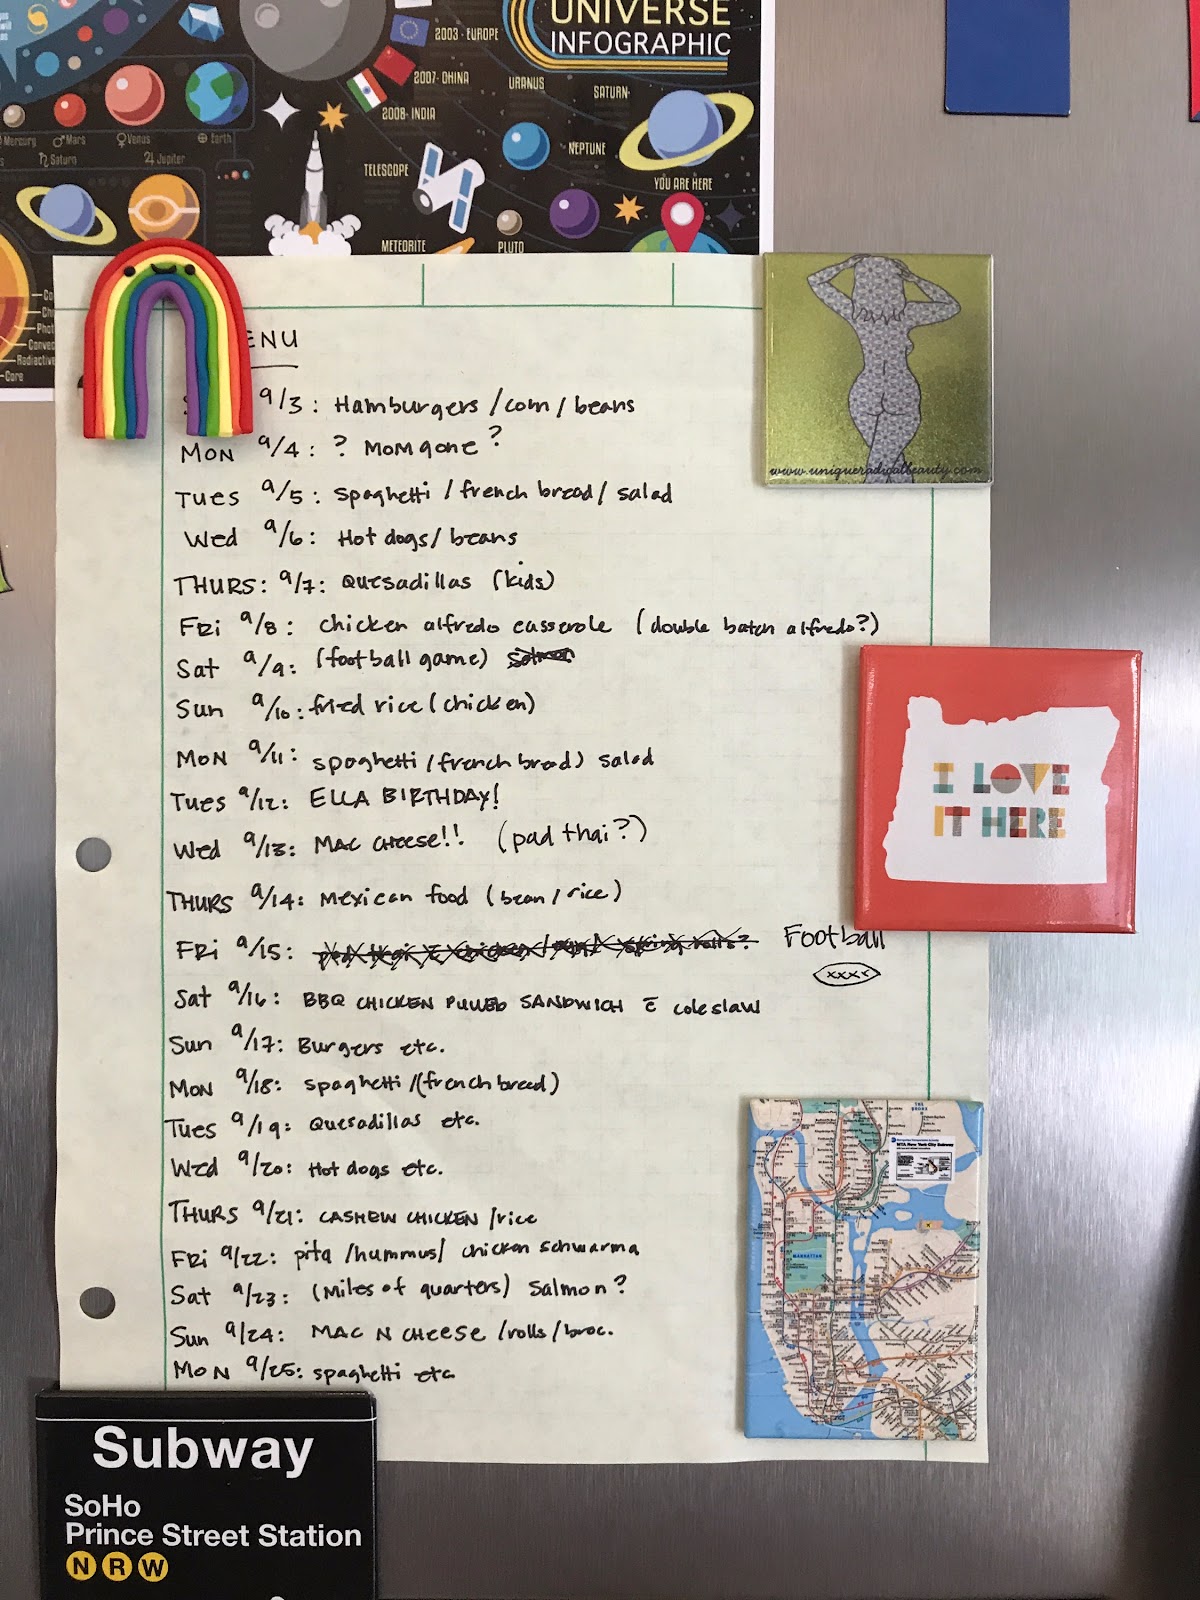 UNIVERSE
INFOGRAPHIC
2003 - EUROPE
2007 - CHINA
2008 - INDIA
URANUS
SATURN
NEPTUNE
TELESCOPE
YOU ARE HERE
METEORITE
PLUTO
Mercury
Mars
Venus
Earth
Saturn
Jupiter
Radioactive
Core
ENU
9/3: Hamburgers / corn / beans
MON 9/4: ? Mom gone?
TUES 9/5: spaghetti / french bread / salad
Wed 9/6: Hot dogs / beans
THURS: 9/7: Quesadillas (kids)
FRI 9/8: chicken alfredo casserole (double batch alfredo?)
Sat 9/9: (football game) salmon
Sun 9/10: fried rice (chicken)
MON 9/11: spaghetti / french bread) salad
Tues 9/12: ELLA BIRTHDAY!
Wed 9/13: MAC CHEESE!! (pad thai?)
THURS 9/14: Mexican food (bean / rice)
FRI 9/15: Football
xxxx
Sat 9/16: BBQ CHICKEN PULLED SANDWICH c̄ coleslaw
Sun 9/17: Burgers etc.
MON 9/18: spaghetti / (french bread)
Tues 9/19: Quesadillas etc.
Wed 9/20: Hot dogs etc.
THURS 9/21: CASHEW CHICKEN / rice
FRI 9/22: pita / hummus / chicken schwarma
Sat 9/23: (Miles of quarters) Salmon?
Sun 9/24: MAC N CHEESE / rolls / broc.
MON 9/25: spaghetti etc
www.uniqueradicalbeauty.com
I LOVE
IT HERE
THE BRONX
MTA New York City Subway
MANHATTAN
Subway
SoHo
Prince Street Station
N R W